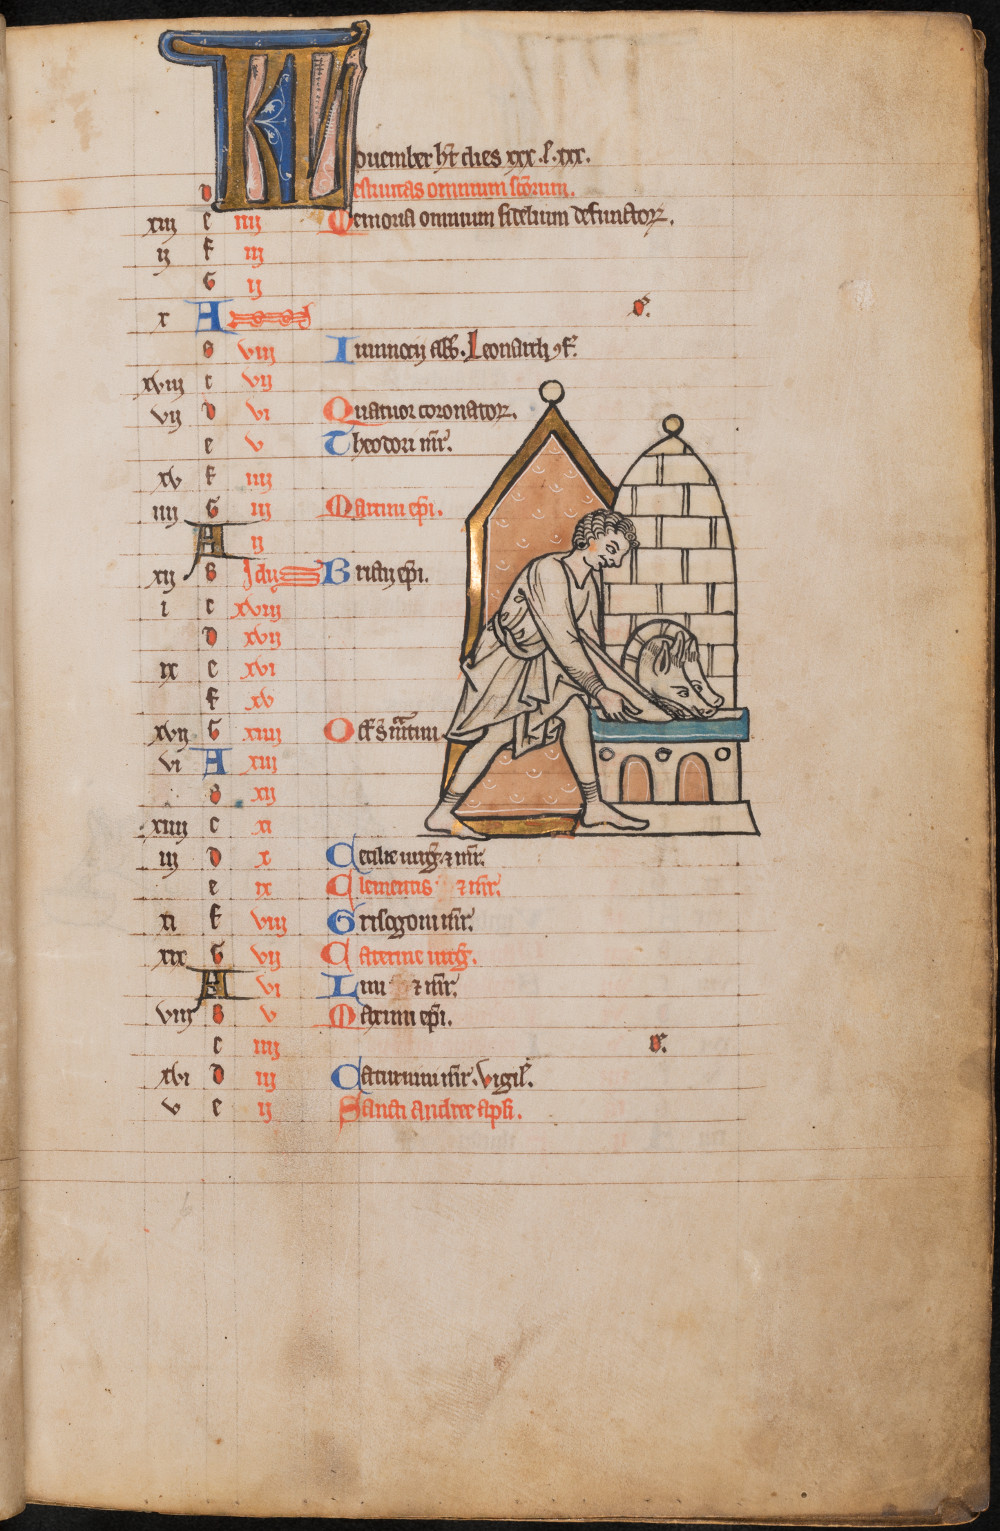 KL November ht dies xxx. l. xxx.
d Festiuitas omnium scorum.
xiij e iiij Memoria omnium fidelium defunctor.
ij f iij
G ij
x A Nonas D.
B viij Winnoci abb. Leonardi 9f.
xviij c vij
vij D vi Quatuor coronator.
e v Theodori mr.
xv f iiij
iiij G iij Martini epi.
A ij
xij B Idus Bricij epi.
i c xviij
D xvij
ix e xvi
f xv
xvij G xiiij Oct s martini
vi A xiij
B xij
xiiij c xi
iij D x Cecilie uirg. 7 mr.
e ix Clementis 7 mr.
xi f viij Grisogoni mr.
xix G vij Caterine uirg.
A vi Lini 7 mr.
viij B v Maximi epi.
c iiij D.
xvi D iij Saturnini mr. Vigil.
v e ij Sancti andree apli.